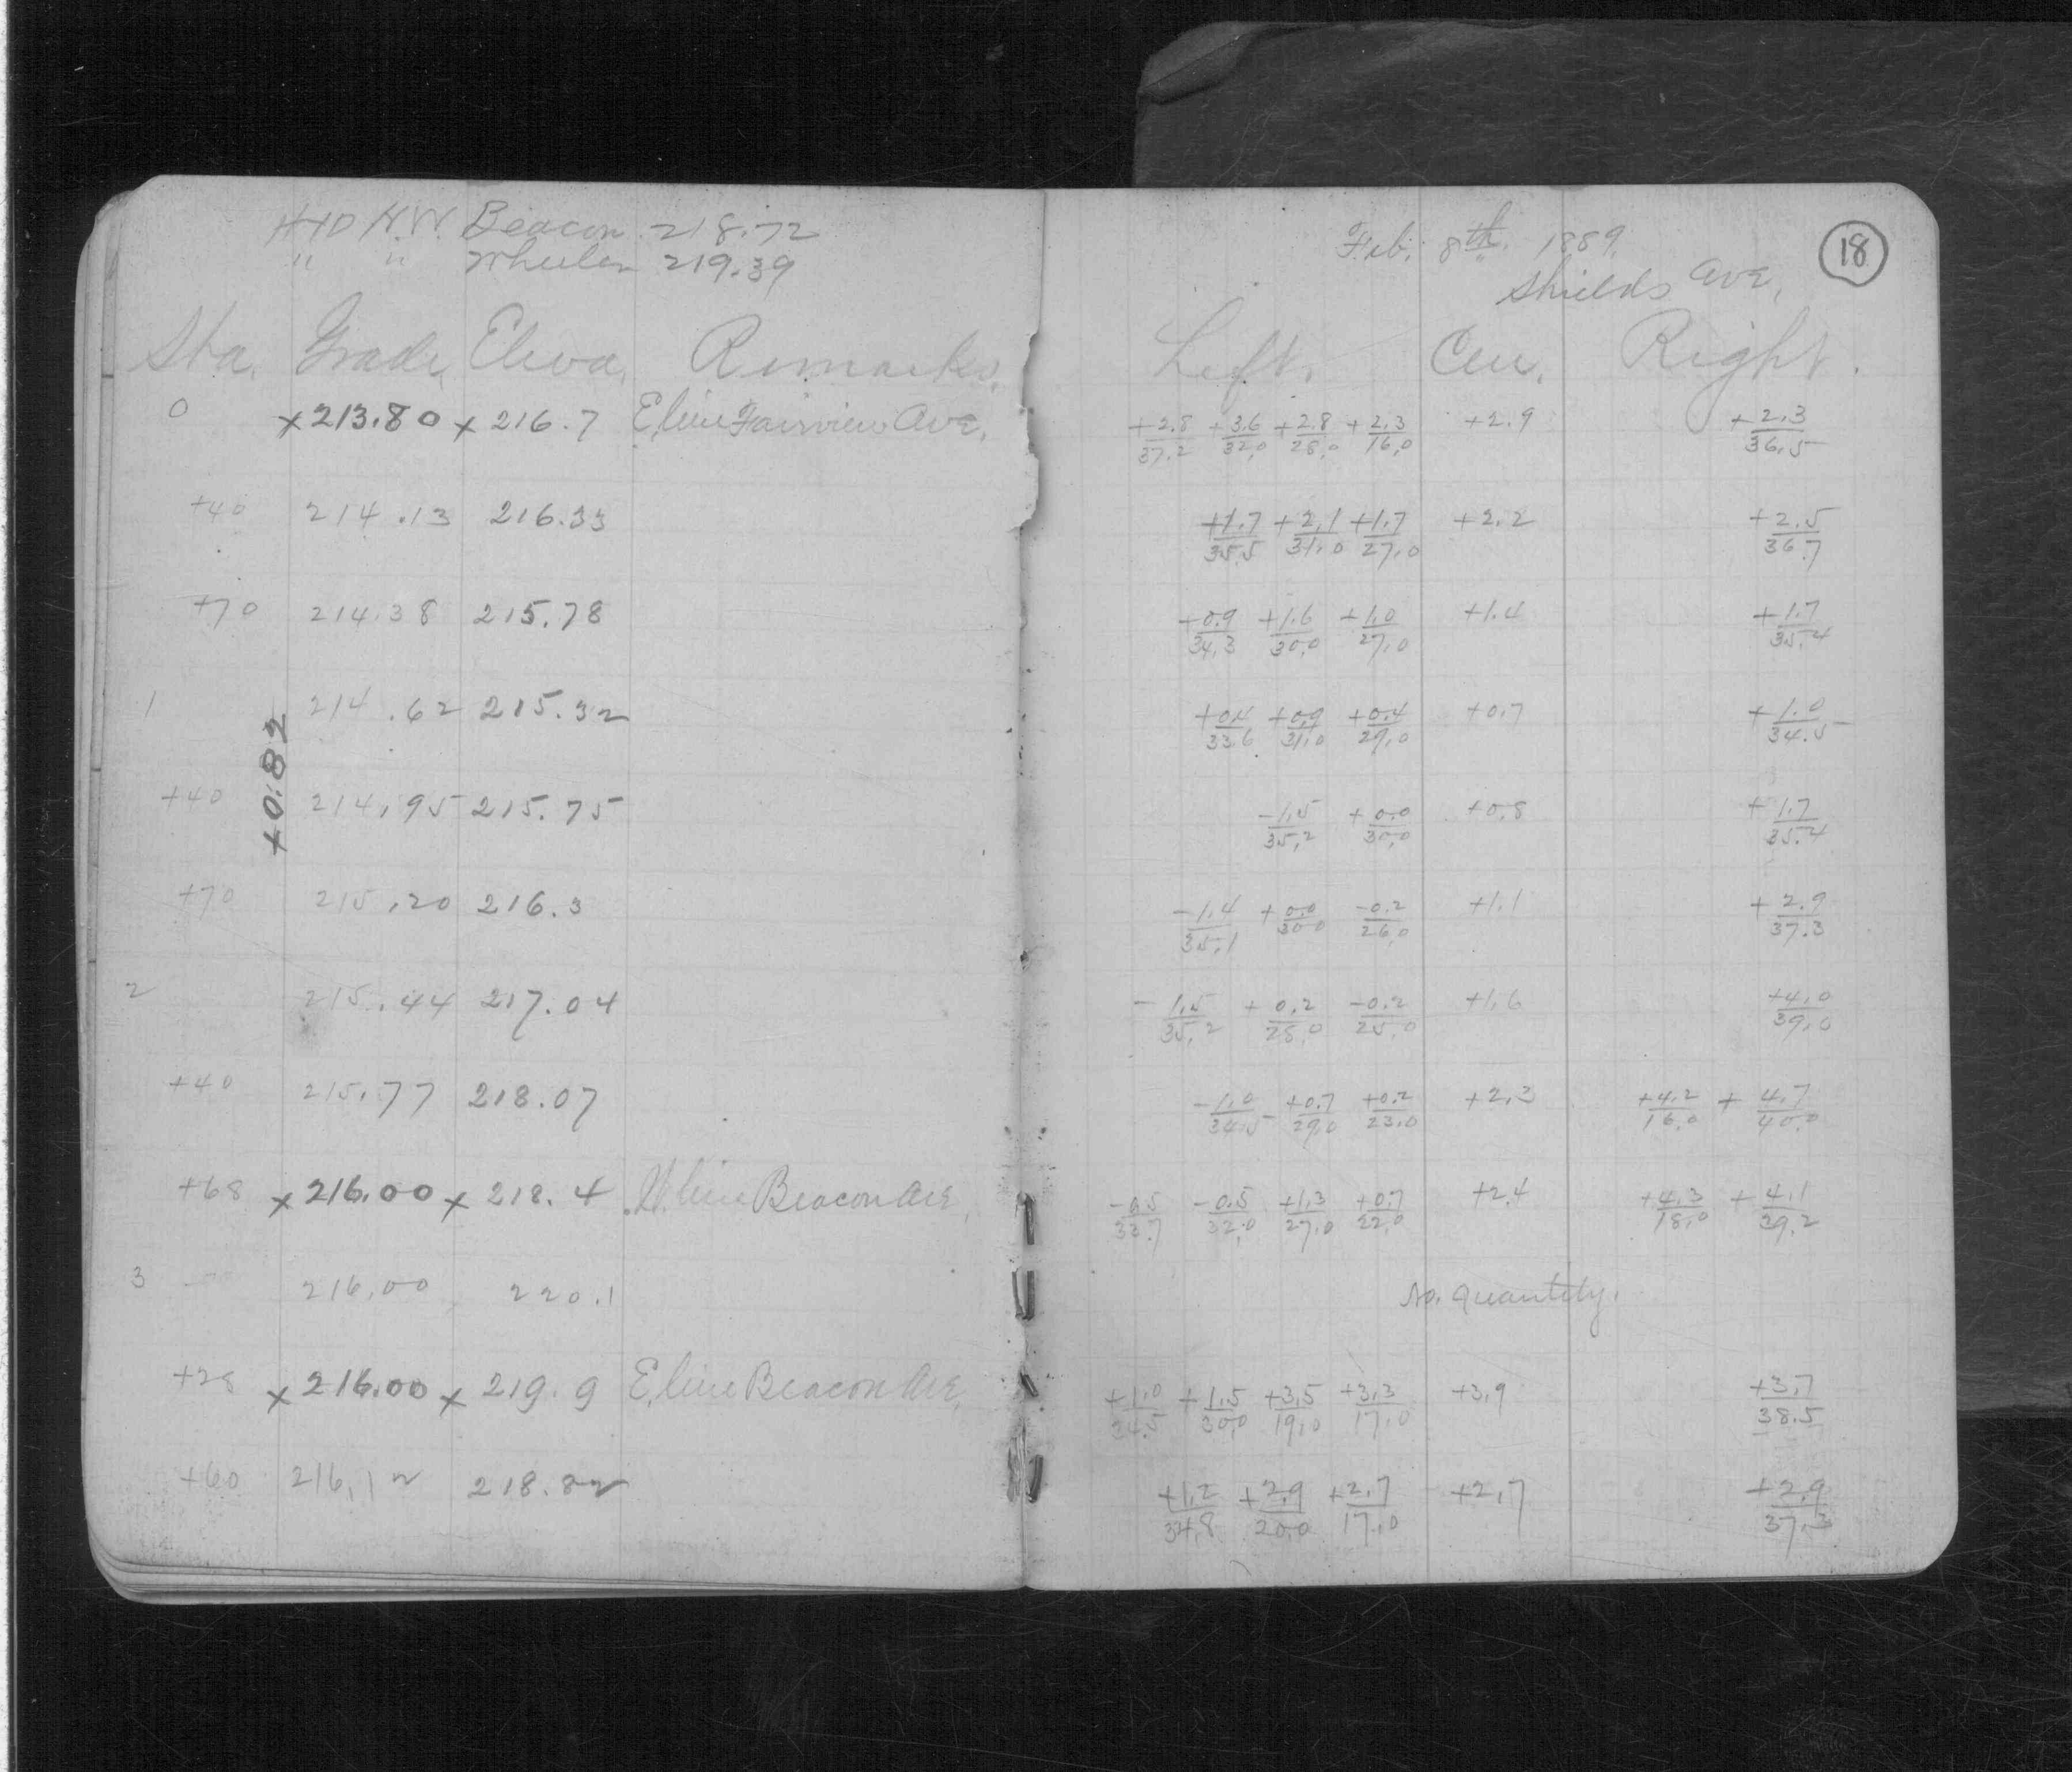 HYD N.W. Beacon 218.72
" " Wheeler 219.39
Sta. Grade, Eleva, Remarks,
0 x 213.80 x 216.7 E, line Fairview Ave,
+40 214.13 216.33
+70 214.38 215.78
1 214.62 215.32
+0.82
+40 214.95 215.75
+70 215.20 216.3
2 215.44 217.04
+40 215.77 218.07
+68 x 216.00 x 218.4 W. line Beacon Ave,
3 216.00 220.1
+28 x 216.00 x 219.9 E, line Beacon Ave,
+60 216.12 218.82
Feb. 8th 1889.
18
Shields Ave,
Left, Cen, Right.
+2.8/37.2 +3.6/32.0 +2.8/28.0 +2.3/16.0 +2.9 +2.3/36.5
+1.7/35.5 +2.1/31.0 +1.7/27.0 +2.2 +2.5/36.7
+0.9/34.3 +1.6/30.0 +1.0/27.0 +1.4 +1.7/35.4
+0.4/33.6 +0.9/31.0 +0.4/29.0 +0.7 +1.0/34.5
-1.5/35.2 +0.0/30.0 +0.8 +1.7/35.4
-1.4/35.1 +0.0/30.0 -0.2/26.0 +1.1 +2.9/37.3
-1.5/35.2 +0.2/28.0 -0.2/25.0 +1.6 +4.0/39.0
-1.0/34.5 +0.7/29.0 +0.2/23.0 +2.3 +4.2/16.0 +4.7/40.0
-0.5/33.7 -0.5/32.0 +1.3/27.0 +0.7/22.0 +2.4 +4.3/18.0 +4.1/39.2
No. quantity.
+1.0/34.5 +1.5/30.0 +3.5/19.0 +3.3/17.0 +3.9 +3.7/38.5
+1.2/34.8 +2.9/20.0 +2.7/17.0 +2.7 +2.9/37.3